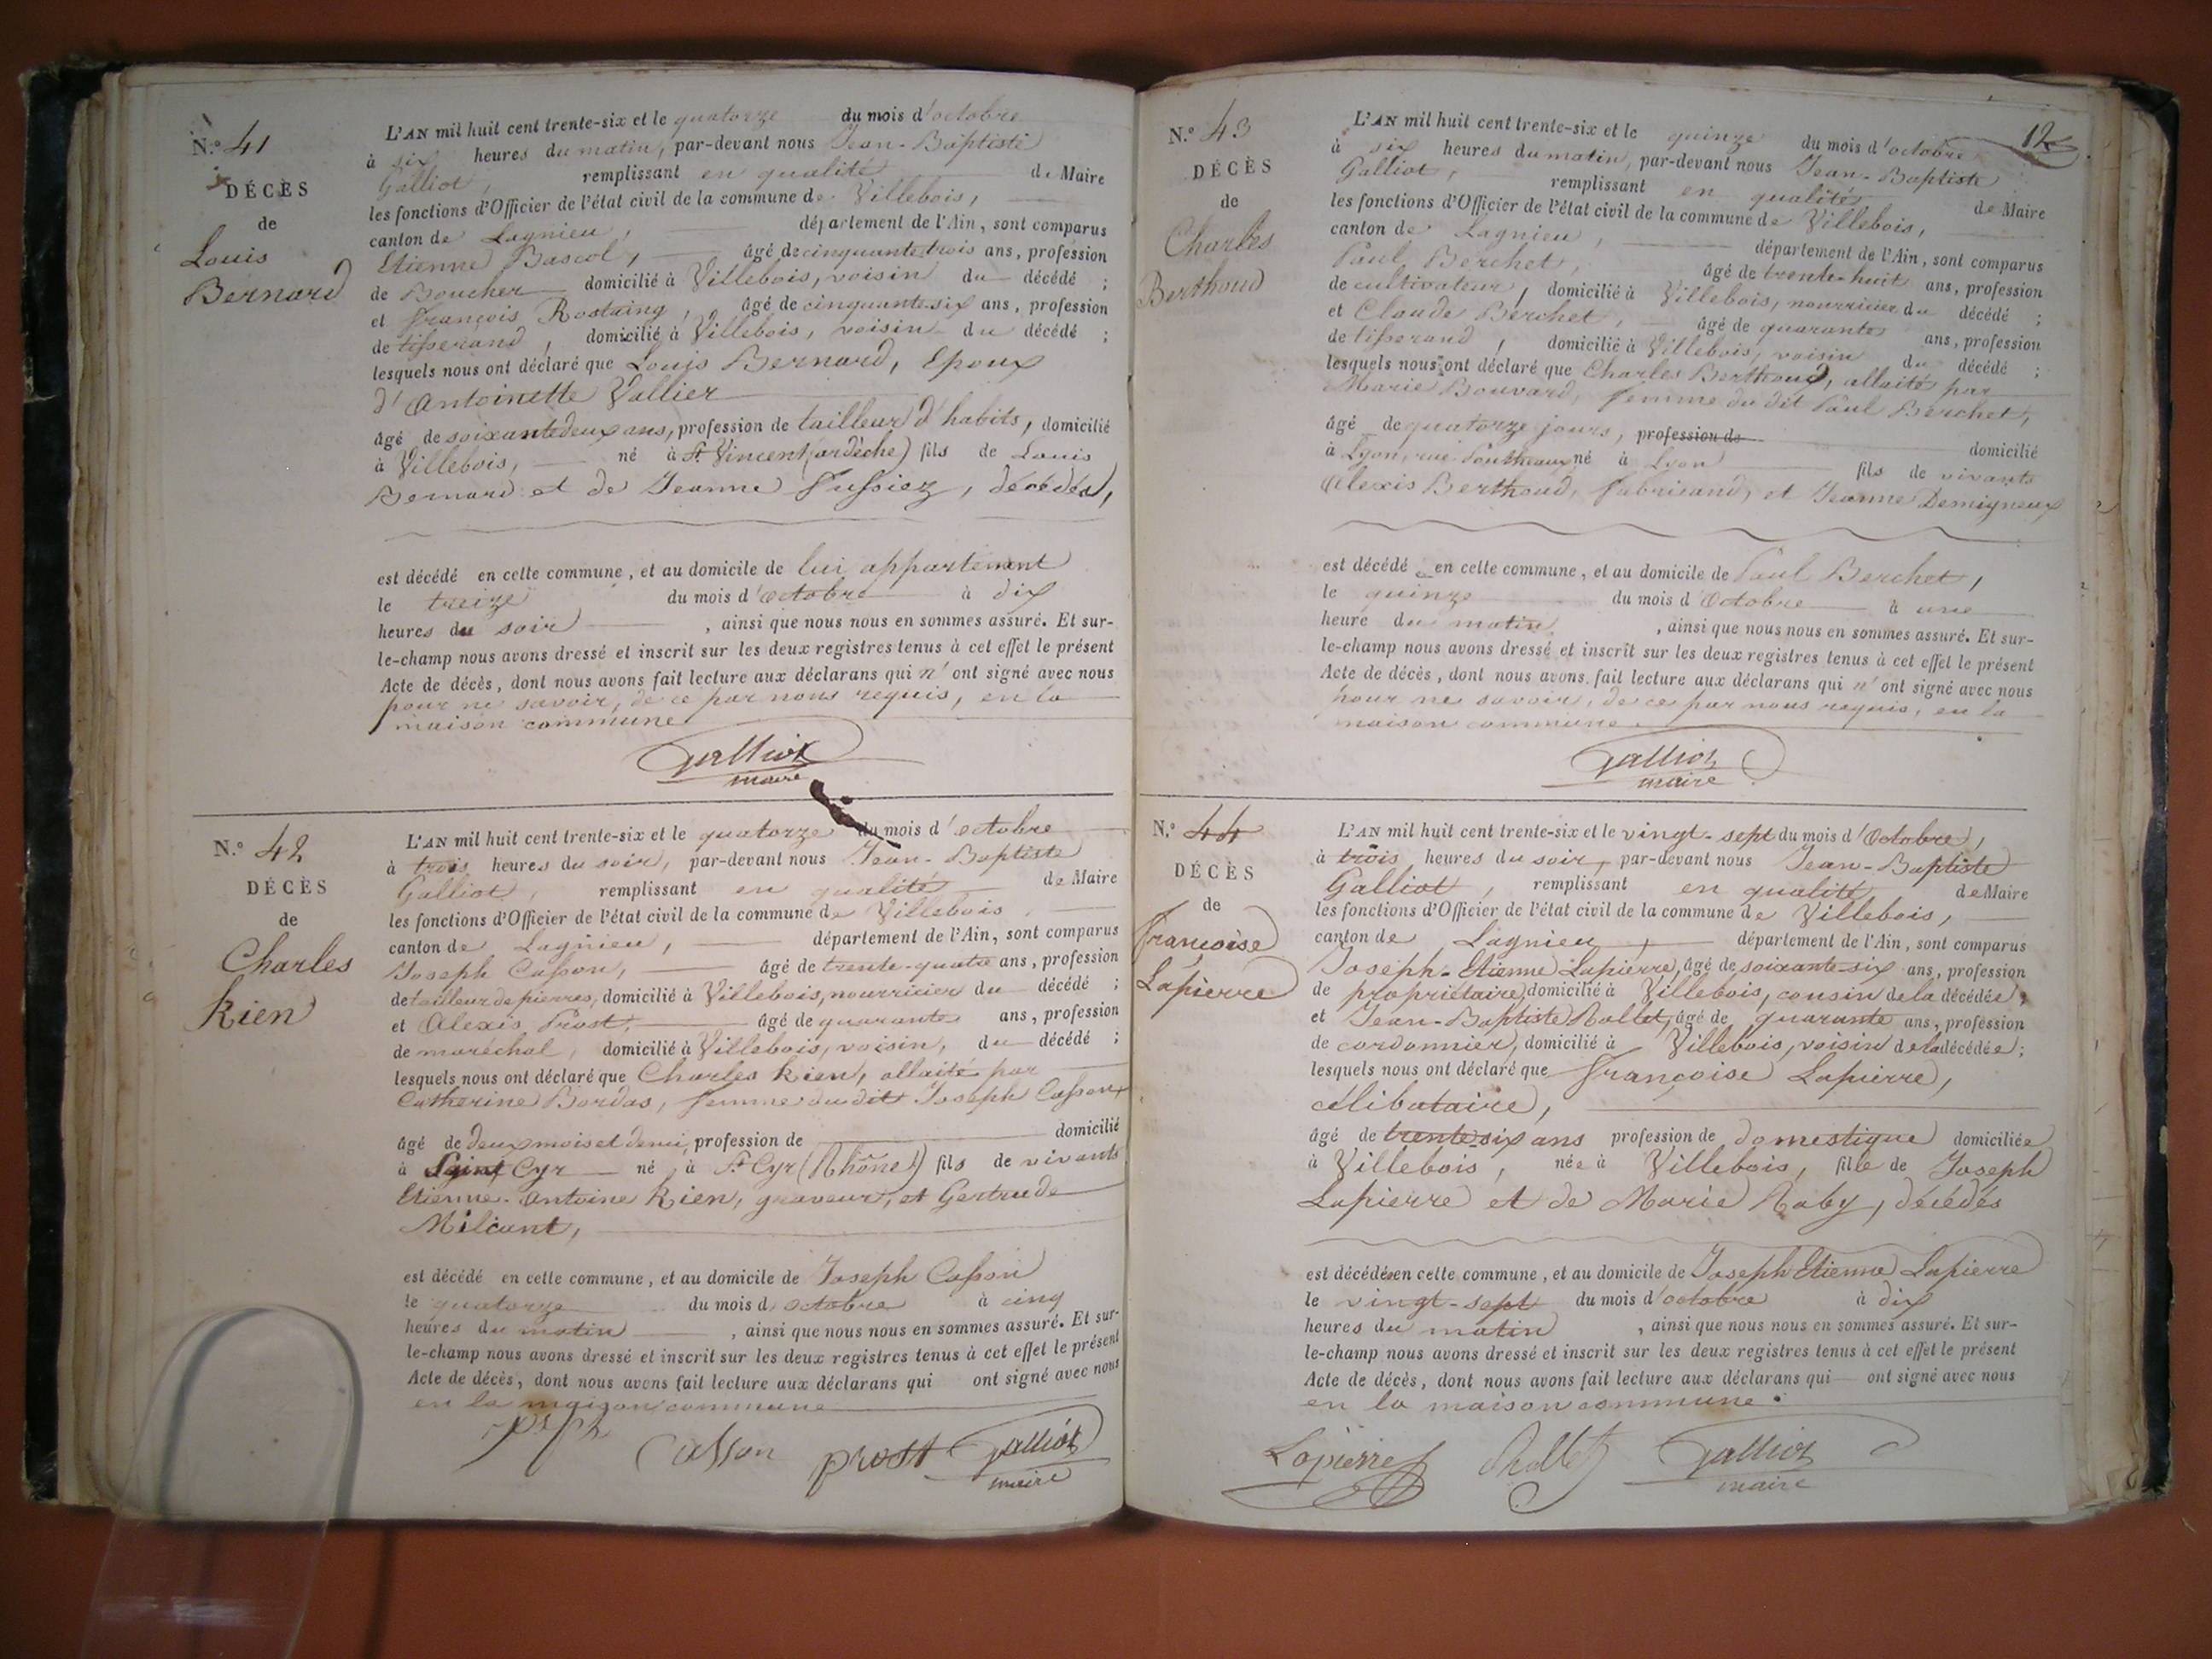 N.º 41
DÉCÈS
de
Louis
Bernard
L'AN mil huit cent trente-six et le quatorze du mois d'octobre
à six heures du matin, par-devant nous Jean-Baptiste
Galliot, remplissant en qualité de Maire
les fonctions d'Officier de l'état civil de la commune de Villebois,
canton de Lagnieu, département de l'Ain, sont comparus
Etienne Bascol, âgé de cinquante trois ans, profession
de Boucher domicilié à Villebois, voisin du décédé ;
et françois Rostaing, âgé de cinquante-six ans, profession
de tisserand, domicilié à Villebois, voisin du décédé ;
lesquels nous ont déclaré que Louis Bernard, Epoux
d'Antoinette Vallier
âgé de soixante deux ans, profession de tailleur d'habits, domicilié
à Villebois, né à St. Vincent (ardèche) fils de Louis
Bernard et de Jeanne , décédés,
est décédé en cette commune, et au domicile de lui appartenant
le treize du mois d'octobre à dix
heures du soir , ainsi que nous nous en sommes assuré. Et sur-
le-champ nous avons dressé et inscrit sur les deux registres tenus à cet effet le présent
Acte de décès, dont nous avons fait lecture aux déclarans qui n'ont signé avec nous
pour ne savoir, de ce par nous requis, en la
maison commune
Galliot
maire
N.º 42
DÉCÈS
de
Charles
Kien
L'AN mil huit cent trente-six et le quatorze du mois d'octobre
à trois heures du soir, par-devant nous Jean-Baptiste
Galliot, remplissant en qualité de Maire
les fonctions d'Officier de l'état civil de la commune de Villebois,
canton de Lagnieu, département de l'Ain, sont comparus
Joseph Casson, âgé de trente-quatre ans, profession
de tailleur de pierres, domicilié à Villebois, nourricier du décédé ;
et Alexis Prost, âgé de quarante ans, profession
de maréchal, domicilié à Villebois, voisin, du décédé ;
lesquels nous ont déclaré que Charles Kien, allaité par
Catherine Bordas, femme du dit Joseph Casson,
âgé de deux mois et demi, profession de domicilié
à Saint Cyr né à St. Cyr (Rhône) fils de vivants
Etienne-Antoine Kien, graveur, et Gertrude
Milcant,
est décédé en cette commune, et au domicile de Joseph Casson
le quatorze du mois d'octobre à cinq
heures du matin , ainsi que nous nous en sommes assuré. Et sur-
le-champ nous avons dressé et inscrit sur les deux registres tenus à cet effet le présent
Acte de décès, dont nous avons fait lecture aux déclarans qui ont signé avec nous
en la maison commune
Casson prost Galliot
maire
12
N.º 43
DÉCÈS
de
Charles
Berthoud
L'AN mil huit cent trente-six et le quinze du mois d'octobre
à six heures du matin, par-devant nous Jean-Baptiste
Galliot, remplissant en qualité de Maire
les fonctions d'Officier de l'état civil de la commune de Villebois,
canton de Lagnieu, département de l'Ain, sont comparus
Paul Berchet, âgé de trente-huit ans, profession
de cultivateur, domicilié à Villebois, nourricier du décédé ;
et Claude Berchet, âgé de quarante ans, profession
de tisserand, domicilié à Villebois, voisin du décédé ;
lesquels nous ont déclaré que Charles Berthoud, allaité par
Marie Bouvard, femme du dit Paul Berchet,
âgé de quatorze jours, profession de domicilié
à Lyon, rue né à Lyon fils de vivants
Alexis Berthoud, fabricand, et Jeanne Demigneux
est décédé en cette commune, et au domicile de Paul Berchet,
le quinze du mois d'Octobre à une
heure du matin , ainsi que nous nous en sommes assuré. Et sur-
le-champ nous avons dressé et inscrit sur les deux registres tenus à cet effet le présent
Acte de décès, dont nous avons fait lecture aux déclarans qui n'ont signé avec nous
pour ne savoir, de ce par nous requis, en la
maison commune.
Galliot
maire
N.º 44
DÉCÈS
de
françoise
Lapierre
L'AN mil huit cent trente-six et le vingt-sept du mois d'Octobre,
à trois heures du soir, par-devant nous Jean-Baptiste
Galliot, remplissant en qualité de Maire
les fonctions d'Officier de l'état civil de la commune de Villebois,
canton de Lagnieu, département de l'Ain, sont comparus
Joseph-Etienne Lapierre, âgé de soixante-six ans, profession
de propriétaire, domicilié à Villebois, cousin de la décédée,
et Jean-Baptiste Rollet, âgé de quarante ans, profession
de cordonnier, domicilié à Villebois, voisin de la décédée ;
lesquels nous ont déclaré que françoise Lapierre,
célibataire,
âgé de trente six ans profession de domestique domiciliée
à Villebois, née à Villebois, fille de Joseph
Lapierre et de Marie Raby, décédés
est décédée en cette commune, et au domicile de Joseph Etienne Lapierre
le vingt-sept du mois d'octobre à dix
heures du matin , ainsi que nous nous en sommes assuré. Et sur-
le-champ nous avons dressé et inscrit sur les deux registres tenus à cet effet le présent
Acte de décès, dont nous avons fait lecture aux déclarans qui ont signé avec nous
en la maison commune.
Lapierre Rollet Galliot
maire